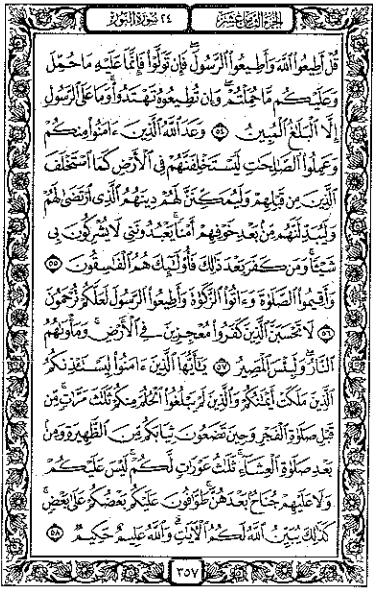 الجزء الثامن عشر ٢٤ سورة النور
قُلْ أَطِيعُوا۟ ٱللَّهَ وَأَطِيعُوا۟ ٱلرَّسُولَ ۖ فَإِن تَوَلَّوْا۟ فَإِنَّمَا عَلَيْهِ مَا حُمِّلَ
وَعَلَيْكُم مَّا حُمِّلْتُمْ ۖ وَإِن تُطِيعُوهُ تَهْتَدُوا۟ ۚ وَمَا عَلَى ٱلرَّسُولِ
إِلَّا ٱلْبَلَٰغُ ٱلْمُبِينُ ٥٤ وَعَدَ ٱللَّهُ ٱلَّذِينَ ءَامَنُوا۟ مِنكُمْ
وَعَمِلُوا۟ ٱلصَّٰلِحَٰتِ لَيَسْتَخْلِفَنَّهُمْ فِى ٱلْأَرْضِ كَمَا ٱسْتَخْلَفَ
ٱلَّذِينَ مِن قَبْلِهِمْ وَلَيُمَكِّنَنَّ لَهُمْ دِينَهُمُ ٱلَّذِى ٱرْتَضَىٰ لَهُمْ
وَلَيُبَدِّلَنَّهُم مِّنۢ بَعْدِ خَوْفِهِمْ أَمْنًا ۚ يَعْبُدُونَنِى لَا يُشْرِكُونَ بِى
شَيْـًٔا ۚ وَمَن كَفَرَ بَعْدَ ذَٰلِكَ فَأُو۟لَٰٓئِكَ هُمُ ٱلْفَٰسِقُونَ ٥٥
وَأَقِيمُوا۟ ٱلصَّلَوٰةَ وَءَاتُوا۟ ٱلزَّكَوٰةَ وَأَطِيعُوا۟ ٱلرَّسُولَ لَعَلَّكُمْ تُرْحَمُونَ
٥٦ لَا تَحْسَبَنَّ ٱلَّذِينَ كَفَرُوا۟ مُعْجِزِينَ فِى ٱلْأَرْضِ ۚ وَمَأْوَىٰهُمُ
ٱلنَّارُ ۖ وَلَبِئْسَ ٱلْمَصِيرُ ٥٧ يَٰٓأَيُّهَا ٱلَّذِينَ ءَامَنُوا۟ لِيَسْتَـْٔذِنكُمُ
ٱلَّذِينَ مَلَكَتْ أَيْمَٰنُكُمْ وَٱلَّذِينَ لَمْ يَبْلُغُوا۟ ٱلْحُلُمَ مِنكُمْ ثَلَٰثَ مَرَّٰتٍ ۚ مِّن
قَبْلِ صَلَوٰةِ ٱلْفَجْرِ وَحِينَ تَضَعُونَ ثِيَابَكُم مِّنَ ٱلظَّهِيرَةِ وَمِنۢ
بَعْدِ صَلَوٰةِ ٱلْعِشَآءِ ۚ ثَلَٰثُ عَوْرَٰتٍ لَّكُمْ ۚ لَيْسَ عَلَيْكُمْ
وَلَا عَلَيْهِمْ جُنَاحٌۢ بَعْدَهُنَّ ۚ طَوَّٰفُونَ عَلَيْكُم بَعْضُكُمْ عَلَىٰ بَعْضٍ ۚ
كَذَٰلِكَ يُبَيِّنُ ٱللَّهُ لَكُمُ ٱلْـَٔايَٰتِ ۗ وَٱللَّهُ عَلِيمٌ حَكِيمٌ ٥٨
٣٥٧